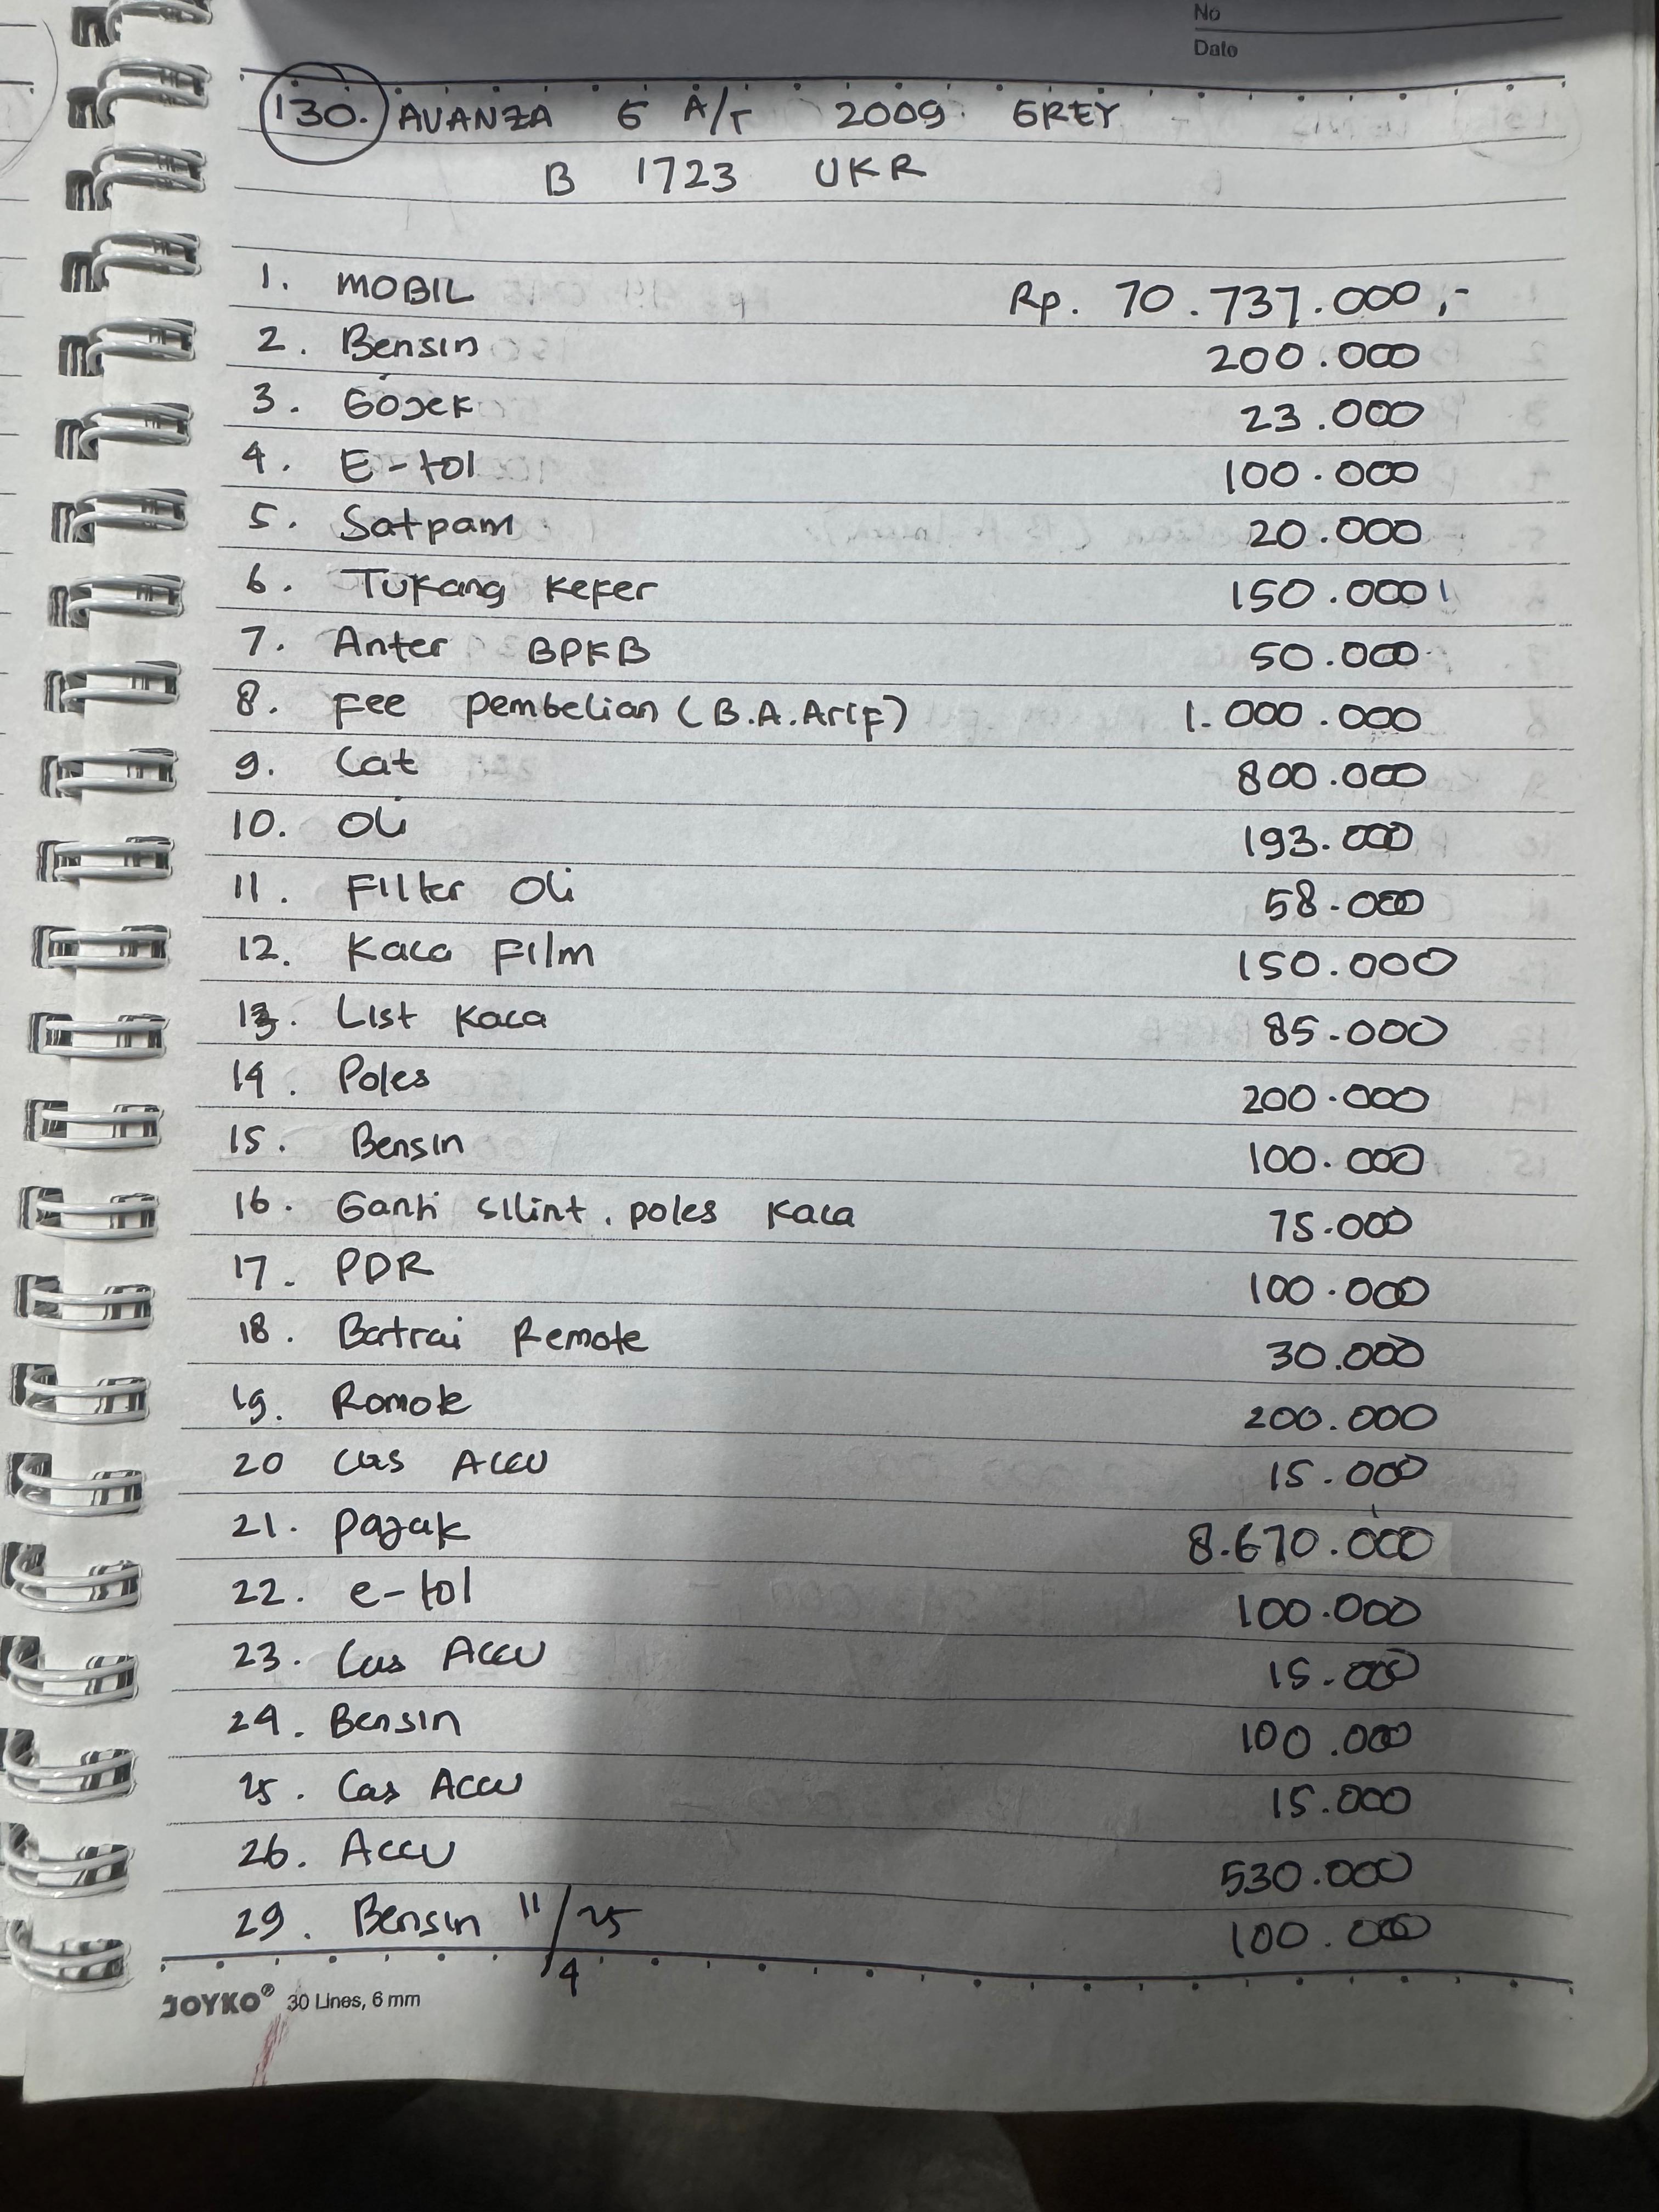 No
Date
130. AVANZA G A/T 2009 GREY
B 1723 UKR
1. MOBIL Rp. 70.737.000,-
2. Bensin 200.000
3. GOJEK 23.000
4. E-tol 100.000
5. Satpam 20.000
6. Tukang Keker 150.000
7. Anter BPKB 50.000
8. Fee pembelian (B.A.Arif) 1.000.000
9. Cat 800.000
10. Oli 193.000
11. Filter Oli 58.000
12. Kaca Film 150.000
13. List Kaca 85.000
14. Poles 200.000
15. Bensin 100.000
16. Ganti silint. poles Kaca 75.000
17. PDR 100.000
18. Batrai Remote 30.000
19. Romote 200.000
20 Cas Accu 15.000
21. Pajak 8.670.000
22. e-tol 100.000
23. Cas Accu 15.000
24. Bensin 100.000
25. Cas Accu 15.000
26. Accu 530.000
29. Bensin 11/4 25 100.000
JOYKO® 30 Lines, 6 mm